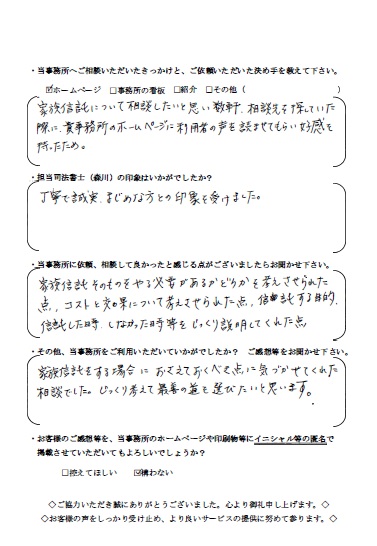 ・当事務所へご相談いただいたきっかけと、ご依頼いただいた決め手を教えて下さい。
☑ホームページ　□事務所の看板　□紹介　□その他（　　　　　　　　）
家族信託について相談したいと思い数軒、相談先を探していた
際に、貴事務所のホームページに利用者の声を読ませてもらい好感を
持ったため。
・担当司法書士（森川）の印象はいかがでしたか？
丁寧で誠実、まじめな方との印象を受けました。
・当事務所に依頼、相談して良かったと感じる点がございましたらお聞かせ下さい。
家族信託そのものをやる必要があるかどうかを考えさせられた
点、コストと効果について考えさせられた点、信託する目的、
信託した時、しなかった時等をじっくり説明してくれた点
・その他、当事務所をご利用いただいていかがでしたか？　ご感想等をお聞かせ下さい。
家族信託をする場合におさえておくべき点に気づかせてくれた
相談でした。じっくり考えて最善の道を選びたいと思います。
・お客様のご感想等を、当事務所のホームページや印刷物等にイニシャル等の匿名で
掲載させていただいてもよろしいでしょうか？
□控えてほしい　☑構わない
◇ご協力いただき誠にありがとうございました。心より御礼申し上げます。◇
◇お客様の声をしっかり受け止め、より良いサービスの提供に努めて参ります。◇